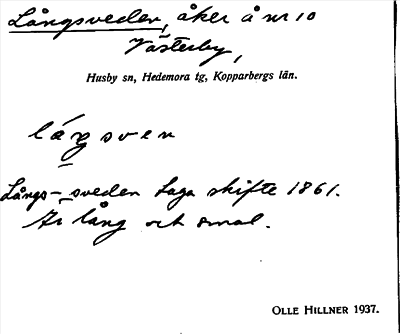 Långsveden, åker å nr 10
Västerby,
Husby sn, Hedemora tg, Kopparbergs län.
lá̱ŋsven
Långs-sveden Laga skifte 1861.
Är lång och smal.
OLLE HILLNER 1937.